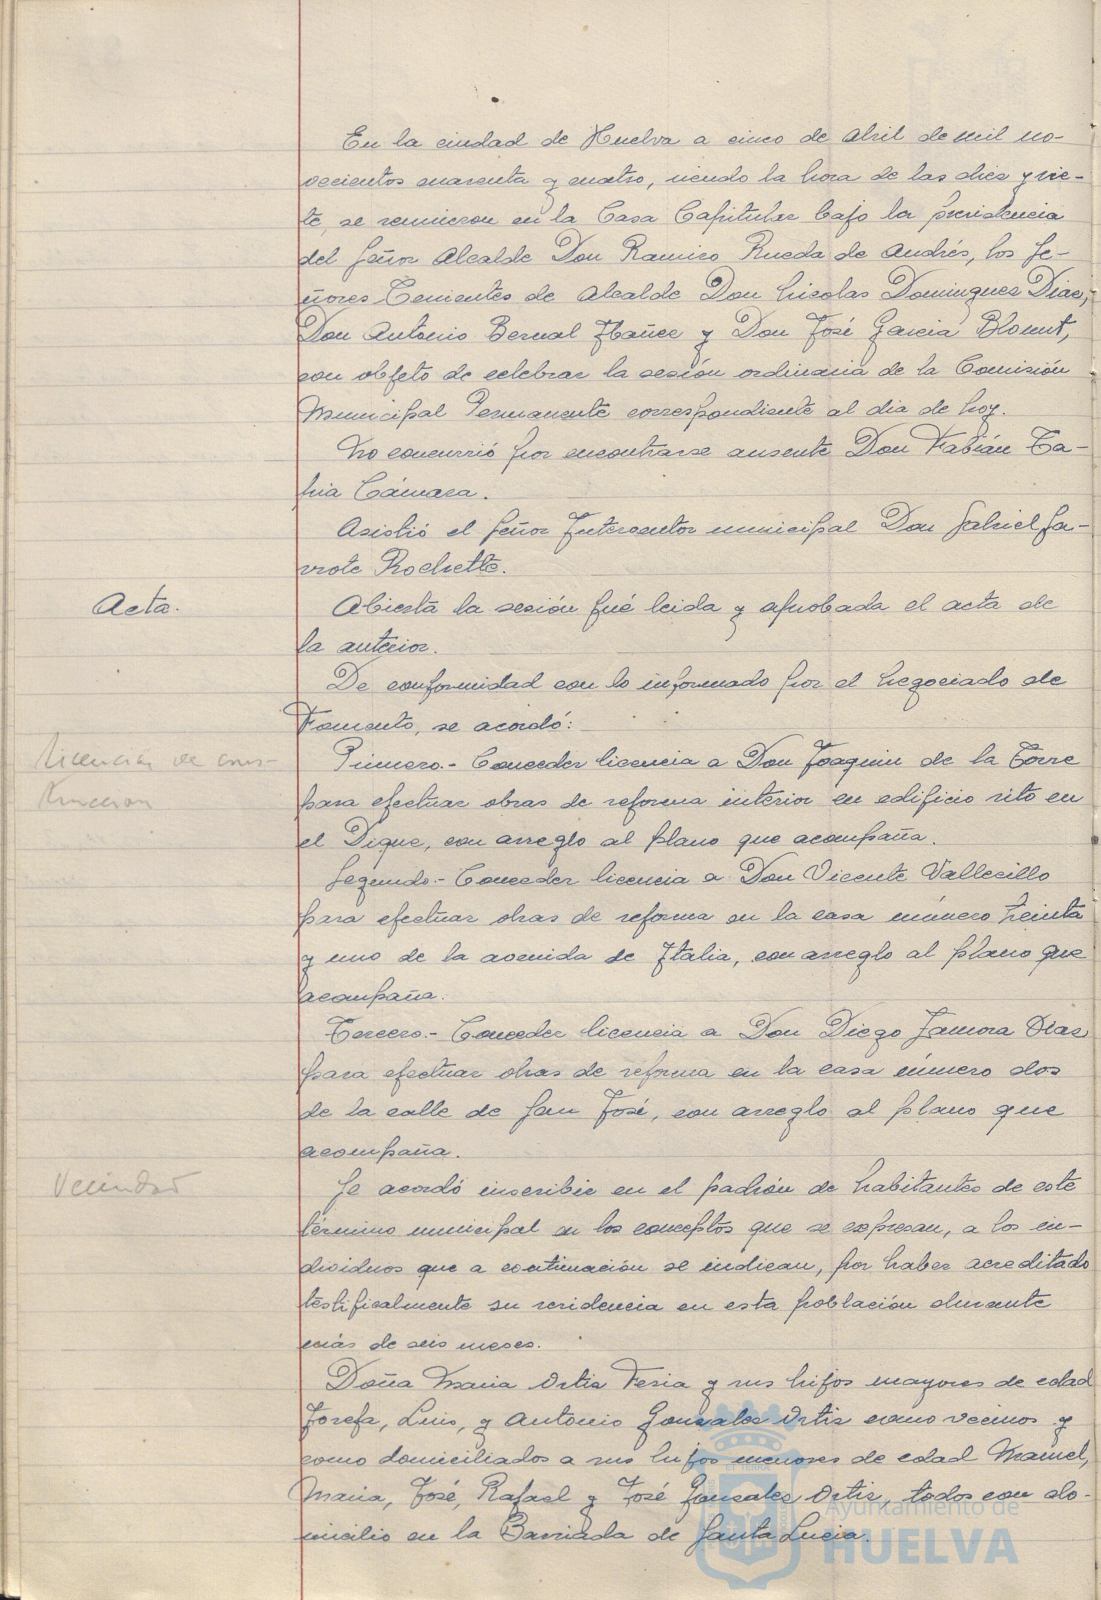 En la ciudad de Huelva a cinco de Abril de mil no-
vecientos cuarenta y cuatro, siendo la hora de las diez y sie-
te, se reunieron en la Casa Capitular bajo la presidencia
del Señor Alcalde Don Ramiro Rueda de Andrés, los Se-
ñores Tenientes de Alcalde Don Nicolas Dominguez Diaz,
Don Antonio Bernal Ibañez y Don José Garcia Blomut,
con objeto de celebrar la sesión ordinaria de la Comisión
Municipal Permanente correspondiente al dia de hoy.
No concurrió por encontrarse ausente Don Fabián Ta-
pia Cámara.
Asistió el Señor Interventor municipal Don Gabriel Ga-
rrote Rochette.
Acta.
Abierta la sesión fué leida y aprobada el acta de
la anterior.
De conformidad con lo informado por el Negociado de
Fomento, se acordó:
Licencias de cons-
truccion
Primero.- Conceder licencia a Don Joaquin de la Torre
para efectuar obras de reforma interior en edificio sito en
el Dique, con arreglo al plano que acompaña.
Segundo.- Conceder licencia a Don Vicente Vallecillo
para efectuar obras de reforma en la casa número treinta
y uno de la avenida de Italia, con arreglo al plano que
acompaña.
Tercero.- Conceder licencia a Don Diego Zamora Diaz
para efectuar obras de reforma en la casa número dos
de la calle de San José, con arreglo al plano que
acompaña.
Vecindad
Se acordó inscribir en el padrón de habitantes de este
término municipal en los conceptos que se expresan, a los in-
dividuos que a continuación se indican, por haber acreditado
testificalmente su residencia en esta población durante
más de seis meses.
Doña Maria Ortiz Feria y sus hijos mayores de edad
Josefa, Luis, y Antonio Gonzalez Ortiz como vecinos y
como domiciliados a sus hijos menores de edad Manuel,
Maria, José, Rafael y José Gonzalez Ortiz, todos con do-
micilio en la Barriada de Santa Lucia.
Ayuntamiento de
HUELVA